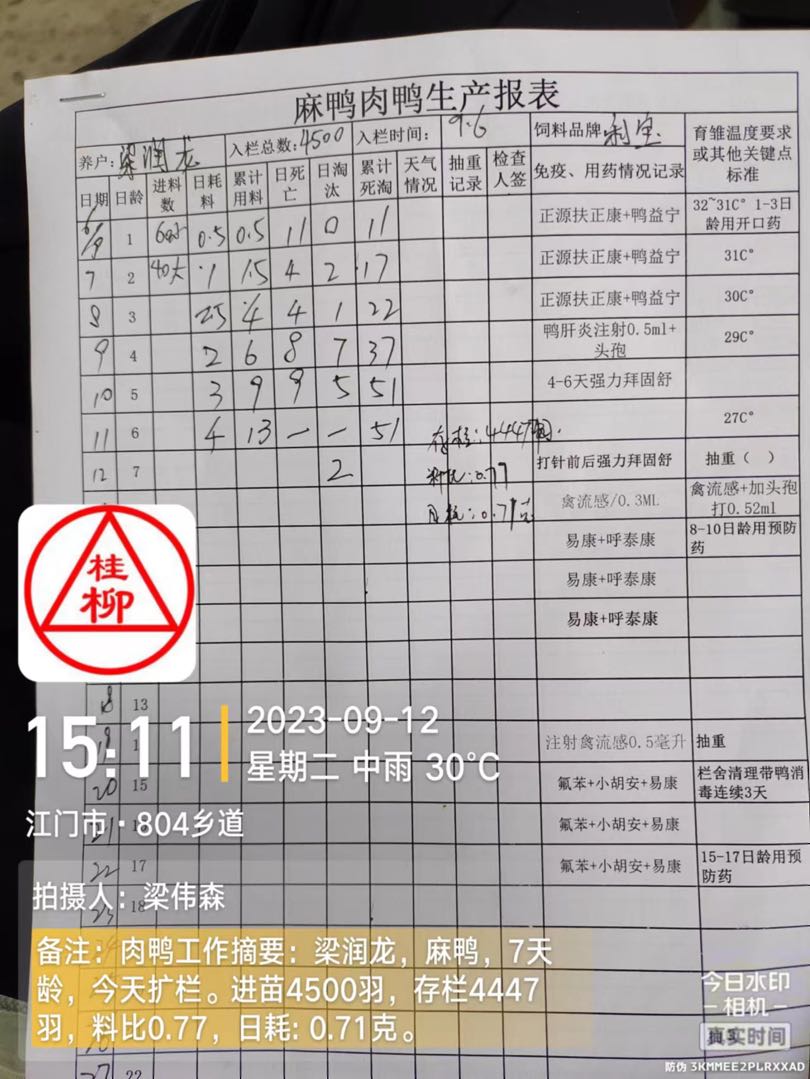 麻鸭肉鸭生产报表
养户: 梁润龙 入栏总数: 4500 入栏时间: 9.6 饲料品牌 利宝 育雏温度要求或其他关键点标准
日期 日龄 进料数 日耗料 累计用料 日死亡 日淘汰 累计死淘 天气情况 抽重记录 检查人签 免疫、用药情况记录
6/9 1 0.5 0.5 11 0 11 正源扶正康+鸭益宁 32~31C° 1-3日龄用开口药
7 2 40大 1 1.5 4 2 17 正源扶正康+鸭益宁 31C°
8 3 2.5 4 4 1 22 正源扶正康+鸭益宁 30C°
9 4 2 6 8 7 37 鸭肝炎注射0.5ml+头孢 29C°
10 5 3 9 9 5 51 4-6天强力拜固舒
11 6 4 13 — — 51 27C°
存栏: 4447羽.
12 7 2 打针前后强力拜固舒 抽重（ ）
料比: 0.77
禽流感/0.3ML 禽流感+加头孢打0.52ml
日耗: 0.71克
易康+呼泰康 8-10日龄用预防药
易康+呼泰康
易康+呼泰康
桂柳
18 13
19 1 注射禽流感0.5毫升 抽重
20 15 氟苯+小胡安+易康 栏舍清理带鸭消毒连续3天
21 氟苯+小胡安+易康
22 17 氟苯+小胡安+易康 15-17日龄用预防药
23 18
27 22
15:11
2023-09-12
星期二 中雨 30°C
江门市·804乡道
拍摄人：梁伟森
备注：肉鸭工作摘要：梁润龙，麻鸭，7天
龄，今天扩栏。进苗4500羽，存栏4447
羽，料比0.77，日耗: 0.71克。
今日水印
相机
真实时间
防伪 3KMMEE2PLRXXAD